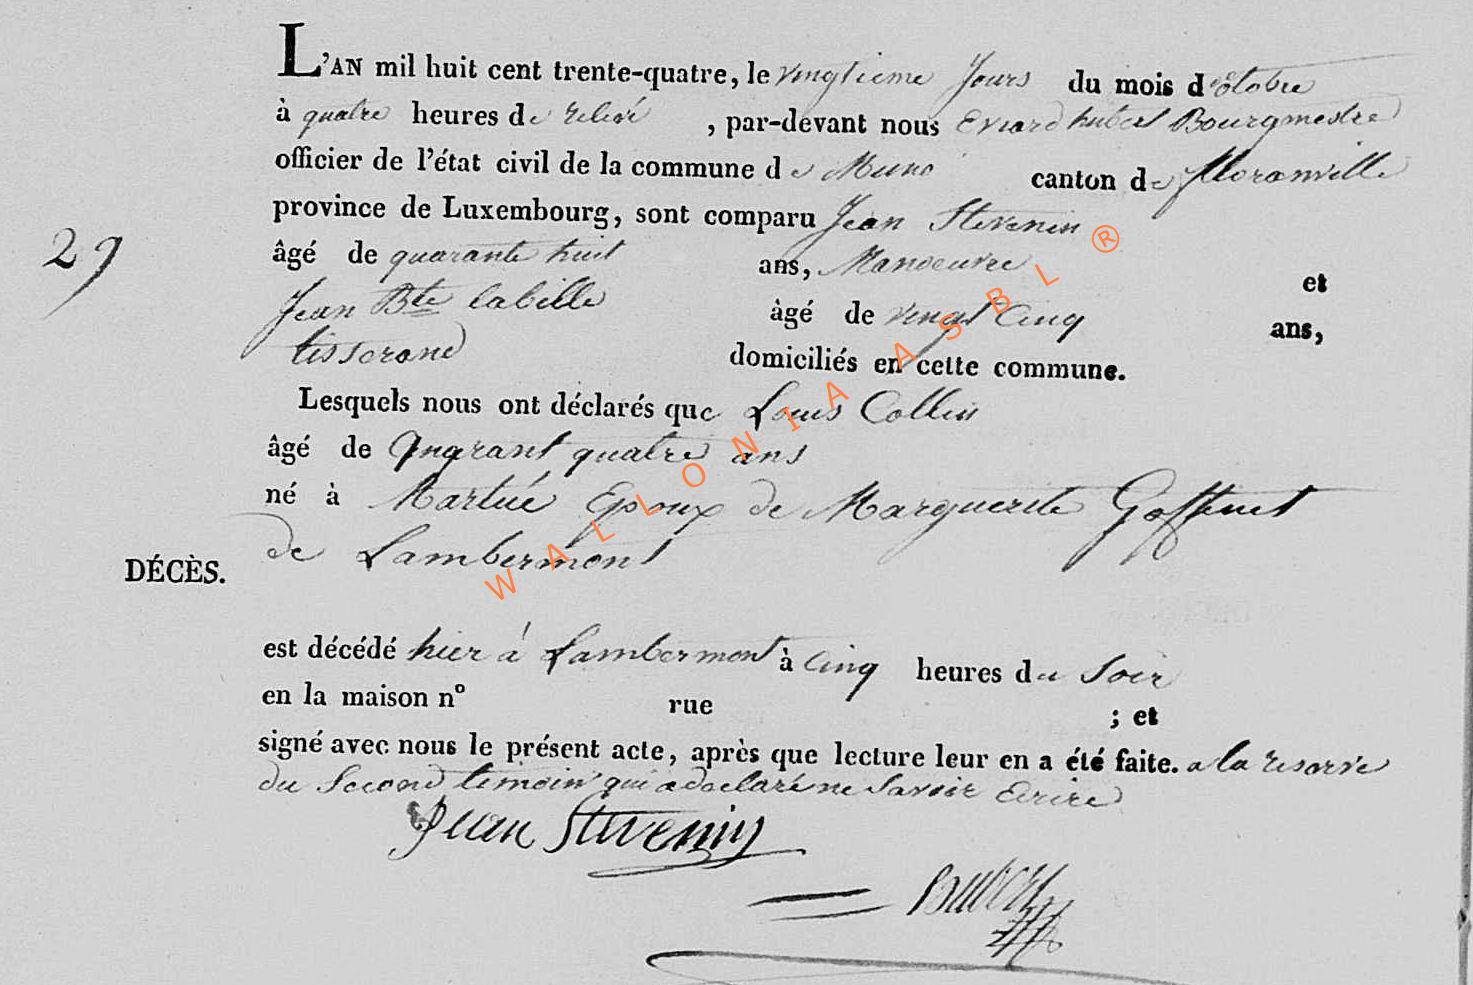 L'AN mil huit cent trente-quatre, le vingtieme Jours du mois d'octobre
à quatre heures de relevé , par-devant nous Evrard hubert Bourgmestre
officier de l'état civil de la commune de Muno canton de floranville
province de Luxembourg, sont comparu Jean Stevenin
29
âgé de quarante huit ans, Manoeuvre et
Jean Bte Labille àgé de vingt Cinq ans,
tisserand domiciliés en cette commune.
Lesquels nous ont déclarés que Louis Collin
âgé de quatre ans
né à Martué Epoux de Marguerite Goffinet
de Lambermont
DÉCÈS.
est décédé hier à Lambermont à Cinq heures du Soir
en la maison nº rue ; et
signé avec nous le présent acte, après que lecture leur en a été faite. a la reserve
du Second temoin qui a declaré ne Savoir Ecrire
Jean Stevenin
WALLONIA ASBL ®